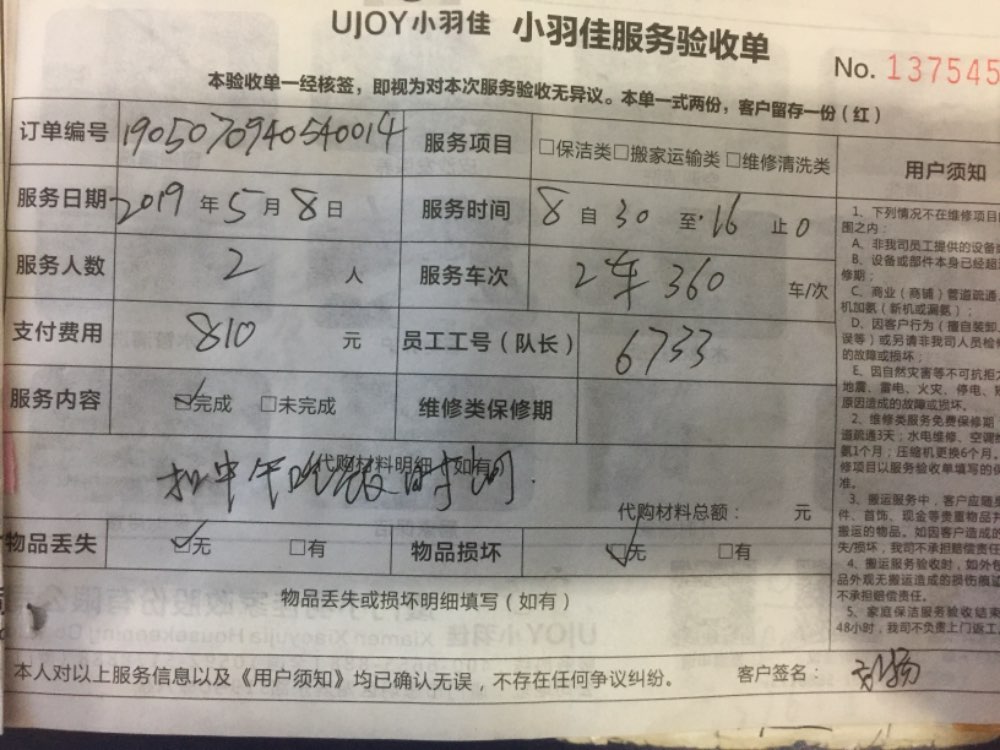 UJOY小羽佳 小羽佳服务验收单
No. 137545
本验收单一经核签，即视为对本次服务验收无异议。本单一式两份，客户留存一份（红）
订单编号 1905070940540014 服务项目 □保洁类□搬家运输类□维修清洗类
服务日期 2019年5月8日 服务时间 8自30至16止0
服务人数 2人 服务车次 2车360 车/次
支付费用 810元 员工工号（队长） 6733
服务内容 ☑完成 □未完成 维修类保修期
代购材料明细（如有
扣中午吃饭时间.
代购材料总额： 元
物品丢失 ☑无 □有 物品损坏 ☑无 □有
物品丢失或损坏明细填写（如有）
本人对以上服务信息以及《用户须知》均已确认无误，不存在任何争议纠纷。 客户签名：
用户须知
1、下列情况不在维修项目
围之内：
A、非我司员工提供的设备
B、设备或部件本身已经超
修期；
C、商业（商铺）管道疏通
机加氨（新机或漏氨）；
D、因客户行为（擅自装卸
误等）或另请非我司人员检
的故障或损坏；
E、因自然灾害等不可抗拒
地震、雷电、火灾、停电、
原因造成的故障或损坏。
2、维修类服务免费保修期
道疏通3天；水电维修、空调
氨1个月；压缩机更换6个月。
修项目以服务验收单填写的
准。
3、搬运服务中，客户应随
件、首饰、现金等贵重物品
搬运的物品。如因客户造成的
失/损坏，我司不承担赔偿责任
4、搬运服务验收时，如外包
品外观无搬运造成的损伤痕
不承担赔偿责任。
5、家庭保洁服务验收结束
48小时，我司不负责上门返工